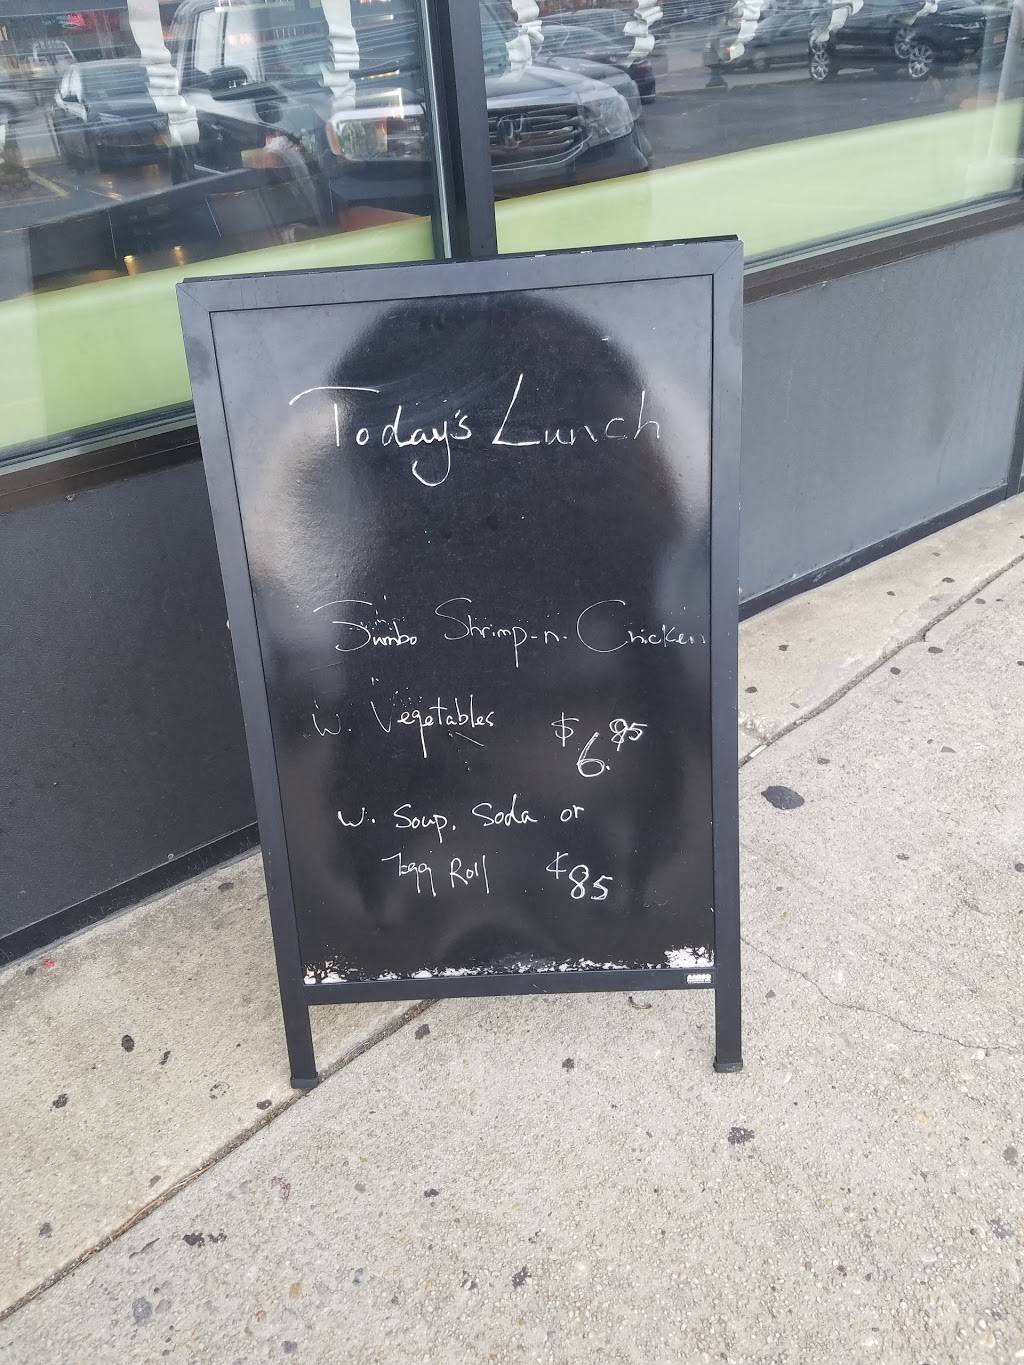 Today's Lunch
Jumbo Shrimp-n-Chicken
W. Vegetables $6.95
W. Soup, Soda or
Egg Roll ¢85